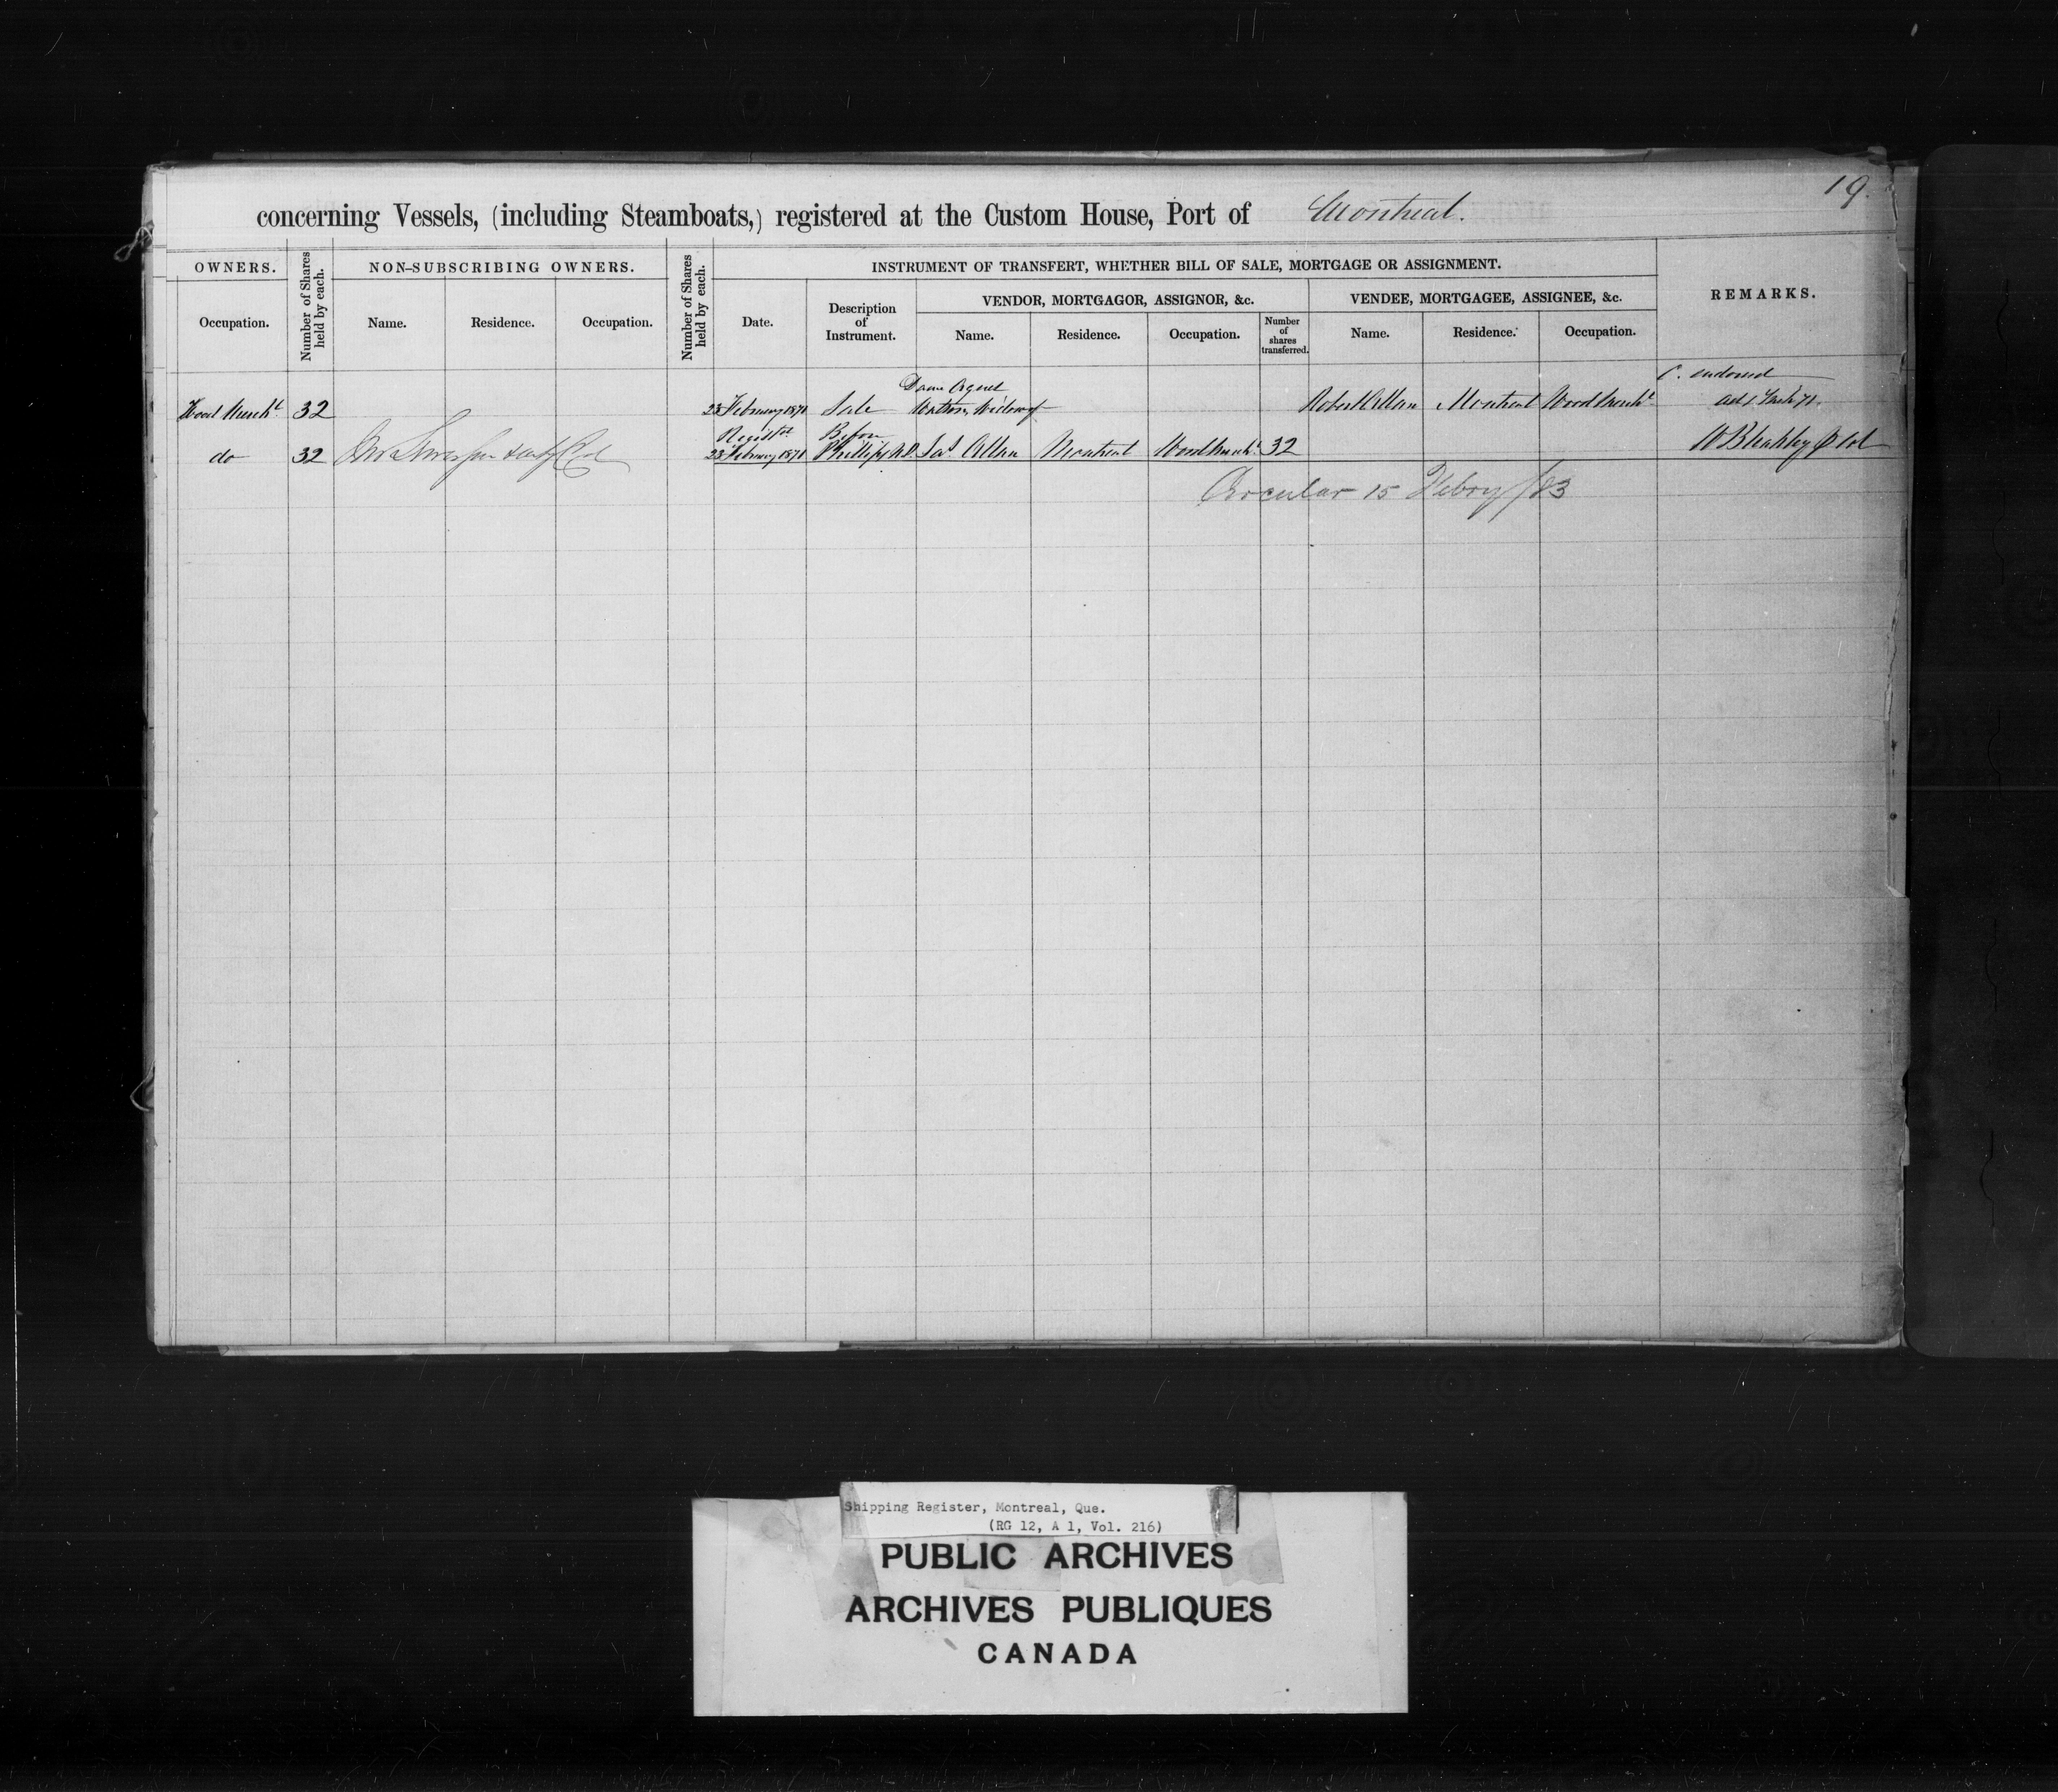 19.
concerning Vessels, (including Steamboats,) registered at the Custom House, Port of Montreal.
OWNERS.
Number of Shares held by each.
NON-SUBSCRIBING OWNERS.
Number of Shares held by each.
INSTRUMENT OF TRANSFERT, WHETHER BILL OF SALE, MORTGAGE OR ASSIGNMENT.
REMARKS.
Occupation.
Name.
Residence.
Occupation.
Date.
Description
of
Instrument.
VENDOR, MORTGAGOR, ASSIGNOR, &c.
VENDEE, MORTGAGEE, ASSIGNEE, &c.
Name.
Residence.
Occupation.
Number
of
shares
transferred.
Name.
Residence.
Occupation.
Dame Agnes
C. endorsed
Wood Mercht 32 23 February 1871 Sale Watson, Widow of Robert Allan Montreal Wood Mercht
Registd Before
do 32 23 February 1871 Phillips N.P. Allan Montreal Wood Mercht 32
Circular 15 Febry /83
Shipping Register, Montreal, Que.
(RG 12, A 1, Vol. 216)
PUBLIC ARCHIVES
ARCHIVES PUBLIQUES
CANADA